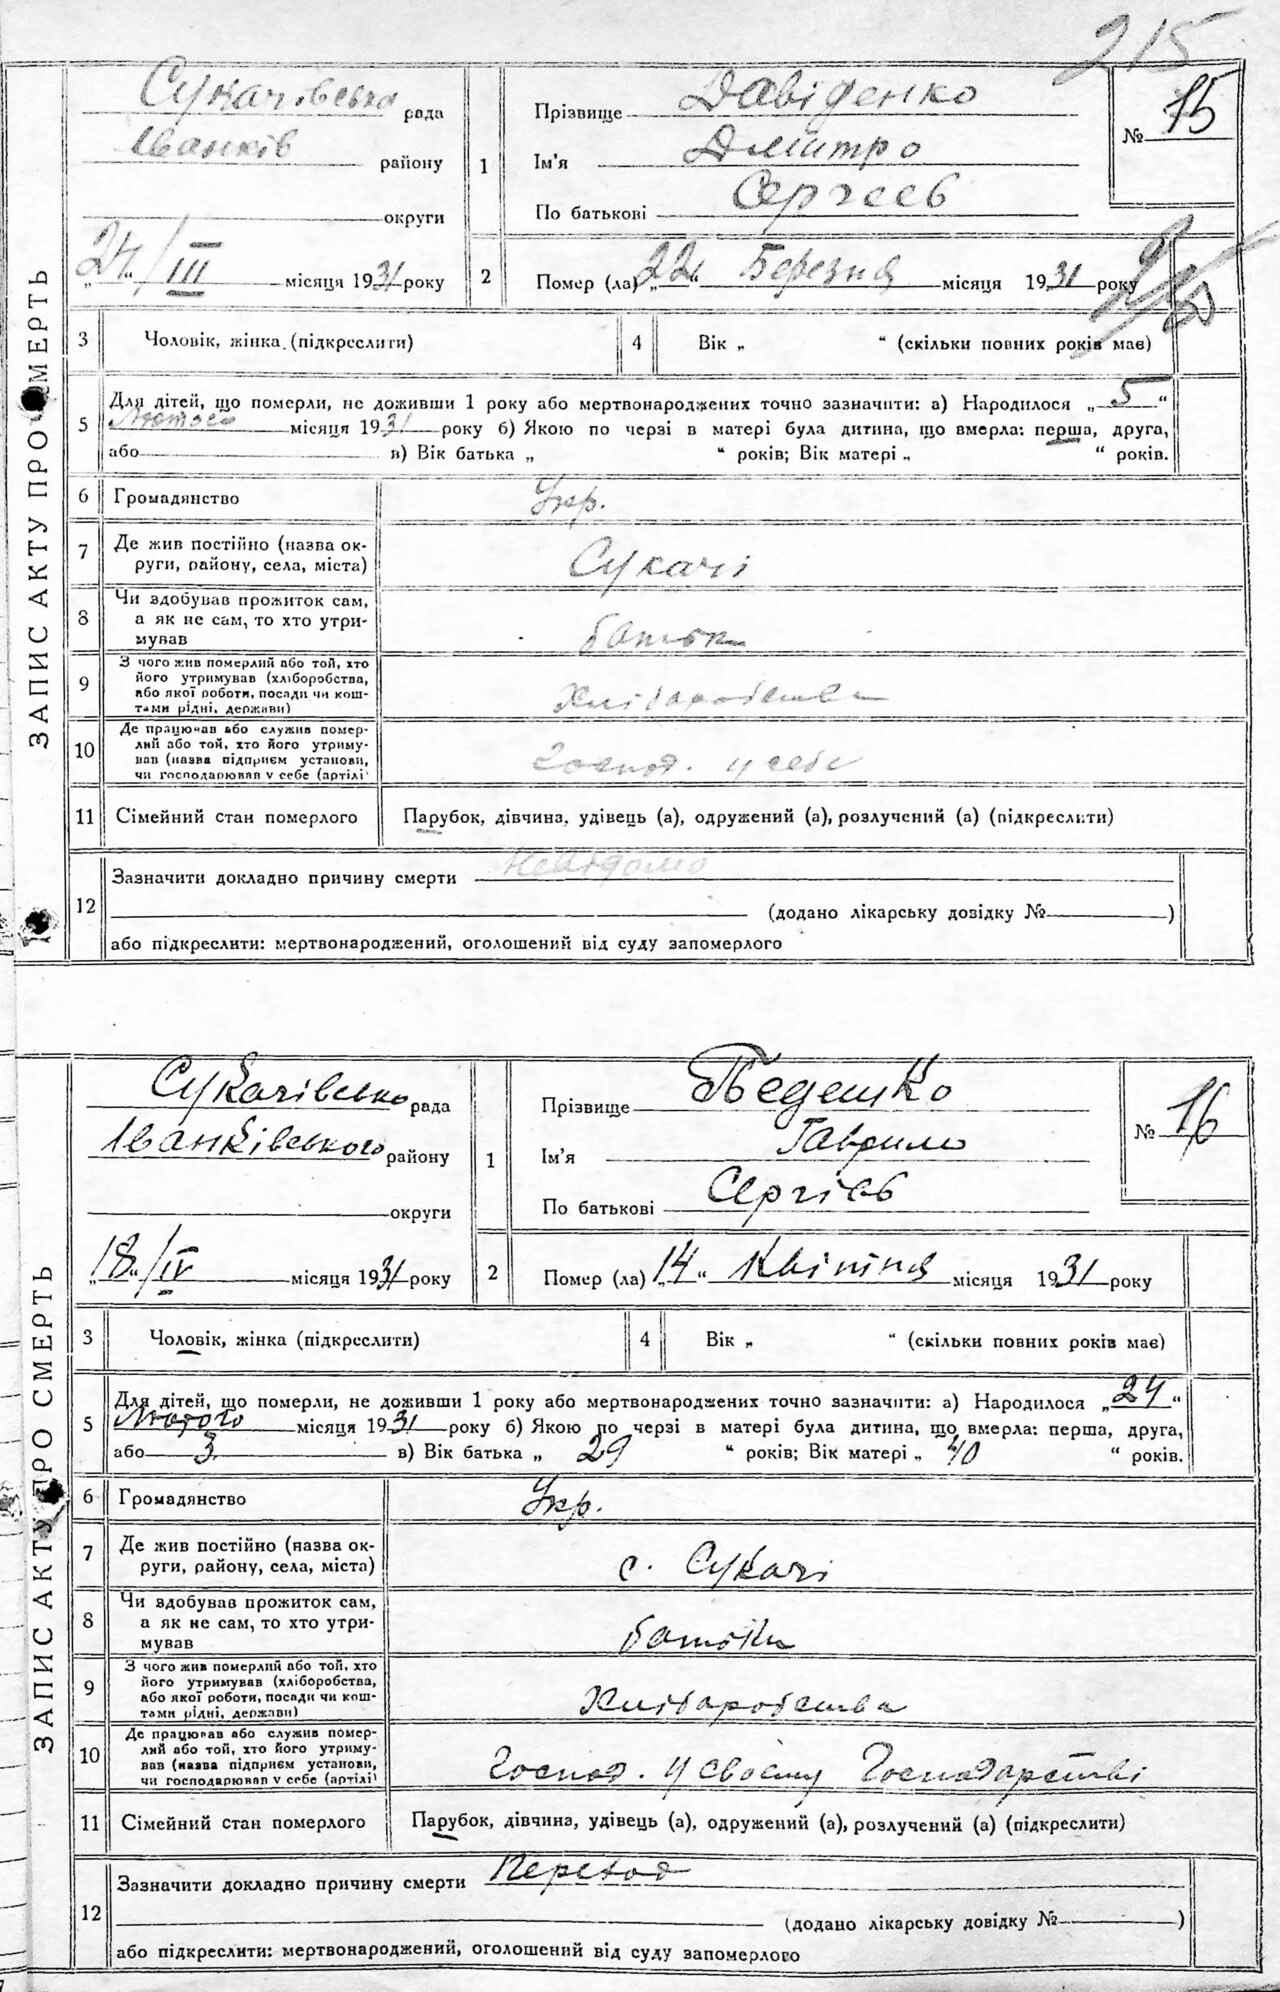 215
ЗАПИС АКТУ ПРО СМЕРТЬ
Сукачівська рада
Іванків району
округи
„24“/III місяця 1931 року
1 Прізвище Давіденко
Ім'я Дмитро
По батькові Сергєєв
№ 15
2 Помер (ла) „22“ Березня місяця 1931 року
3 Чоловік, жінка (підкреслити)
4 Вік „ “ (скільки повних років має)
5 Для дітей, що померли, не доживши 1 року або мертвонароджених точно зазначити: а) Народилося „5“
Лютого місяця 1931 року б) Якою по черзі в матері була дитина, що вмерла: перша, друга,
або в) Вік батька „ “ років; Вік матері „ “ років.
6 Громадянство Укр.
7 Де жив постійно (назва ок-
руги, району, села, міста) Сукачі
8 Чи здобував прожиток сам,
а як не сам, то хто утри-
мував батьки
9 З чого жив померлий або той, хто
його утримував (хліборобства,
або якої роботи, посади чи кош-
тами рідні, держави) Хліборобства
10 Де працював або служив помер-
лий або той, хто його утриму-
вав (назва підприєм установи,
чи господарював у себе (артілі) Господ. у себе
11 Сімейний стан померлого Парубок, дівчина, удівець (а), одружений (а), розлучений (а) (підкреслити)
12 Зазначити докладно причину смерти невідомо
(додано лікарську довідку № )
або підкреслити: мертвонароджений, оголошений від суду запомерлого
ЗАПИС АКТУ ПРО СМЕРТЬ
Сукачівсько рада
Іванківського району
округи
„18“/IV місяця 1931 року
1 Прізвище
Ім'я Гаврило
По батькові Сергієв
№ 16
2 Помер (ла) „14“ Квітня місяця 1931 року
3 Чоловік, жінка (підкреслити)
4 Вік „ “ (скільки повних років має)
5 Для дітей, що померли, не доживши 1 року або мертвонароджених точно зазначити: а) Народилося „24“
Лютого місяця 1931 року б) Якою по черзі в матері була дитина, що вмерла: перша, друга,
або 3 в) Вік батька „ 29 “ років; Вік матері „ 40 “ років.
6 Громадянство Укр.
7 Де жив постійно (назва ок-
руги, району, села, міста) с. Сукачі
8 Чи здобував прожиток сам,
а як не сам, то хто утри-
мував батьки
9 З чого жив померлий або той, хто
його утримував (хліборобства,
або якої роботи, посади чи кош-
тами рідні, держави) Хліборобства
10 Де працював або служив помер-
лий або той, хто його утриму-
вав (назва підприєм установи,
чи господарював у себе (артілі) Господ. у своєму Господарстві
11 Сімейний стан померлого Парубок, дівчина, удівець (а), одружений (а), розлучений (а) (підкреслити)
12 Зазначити докладно причину смерти
(додано лікарську довідку № )
або підкреслити: мертвонароджений, оголошений від суду запомерлого